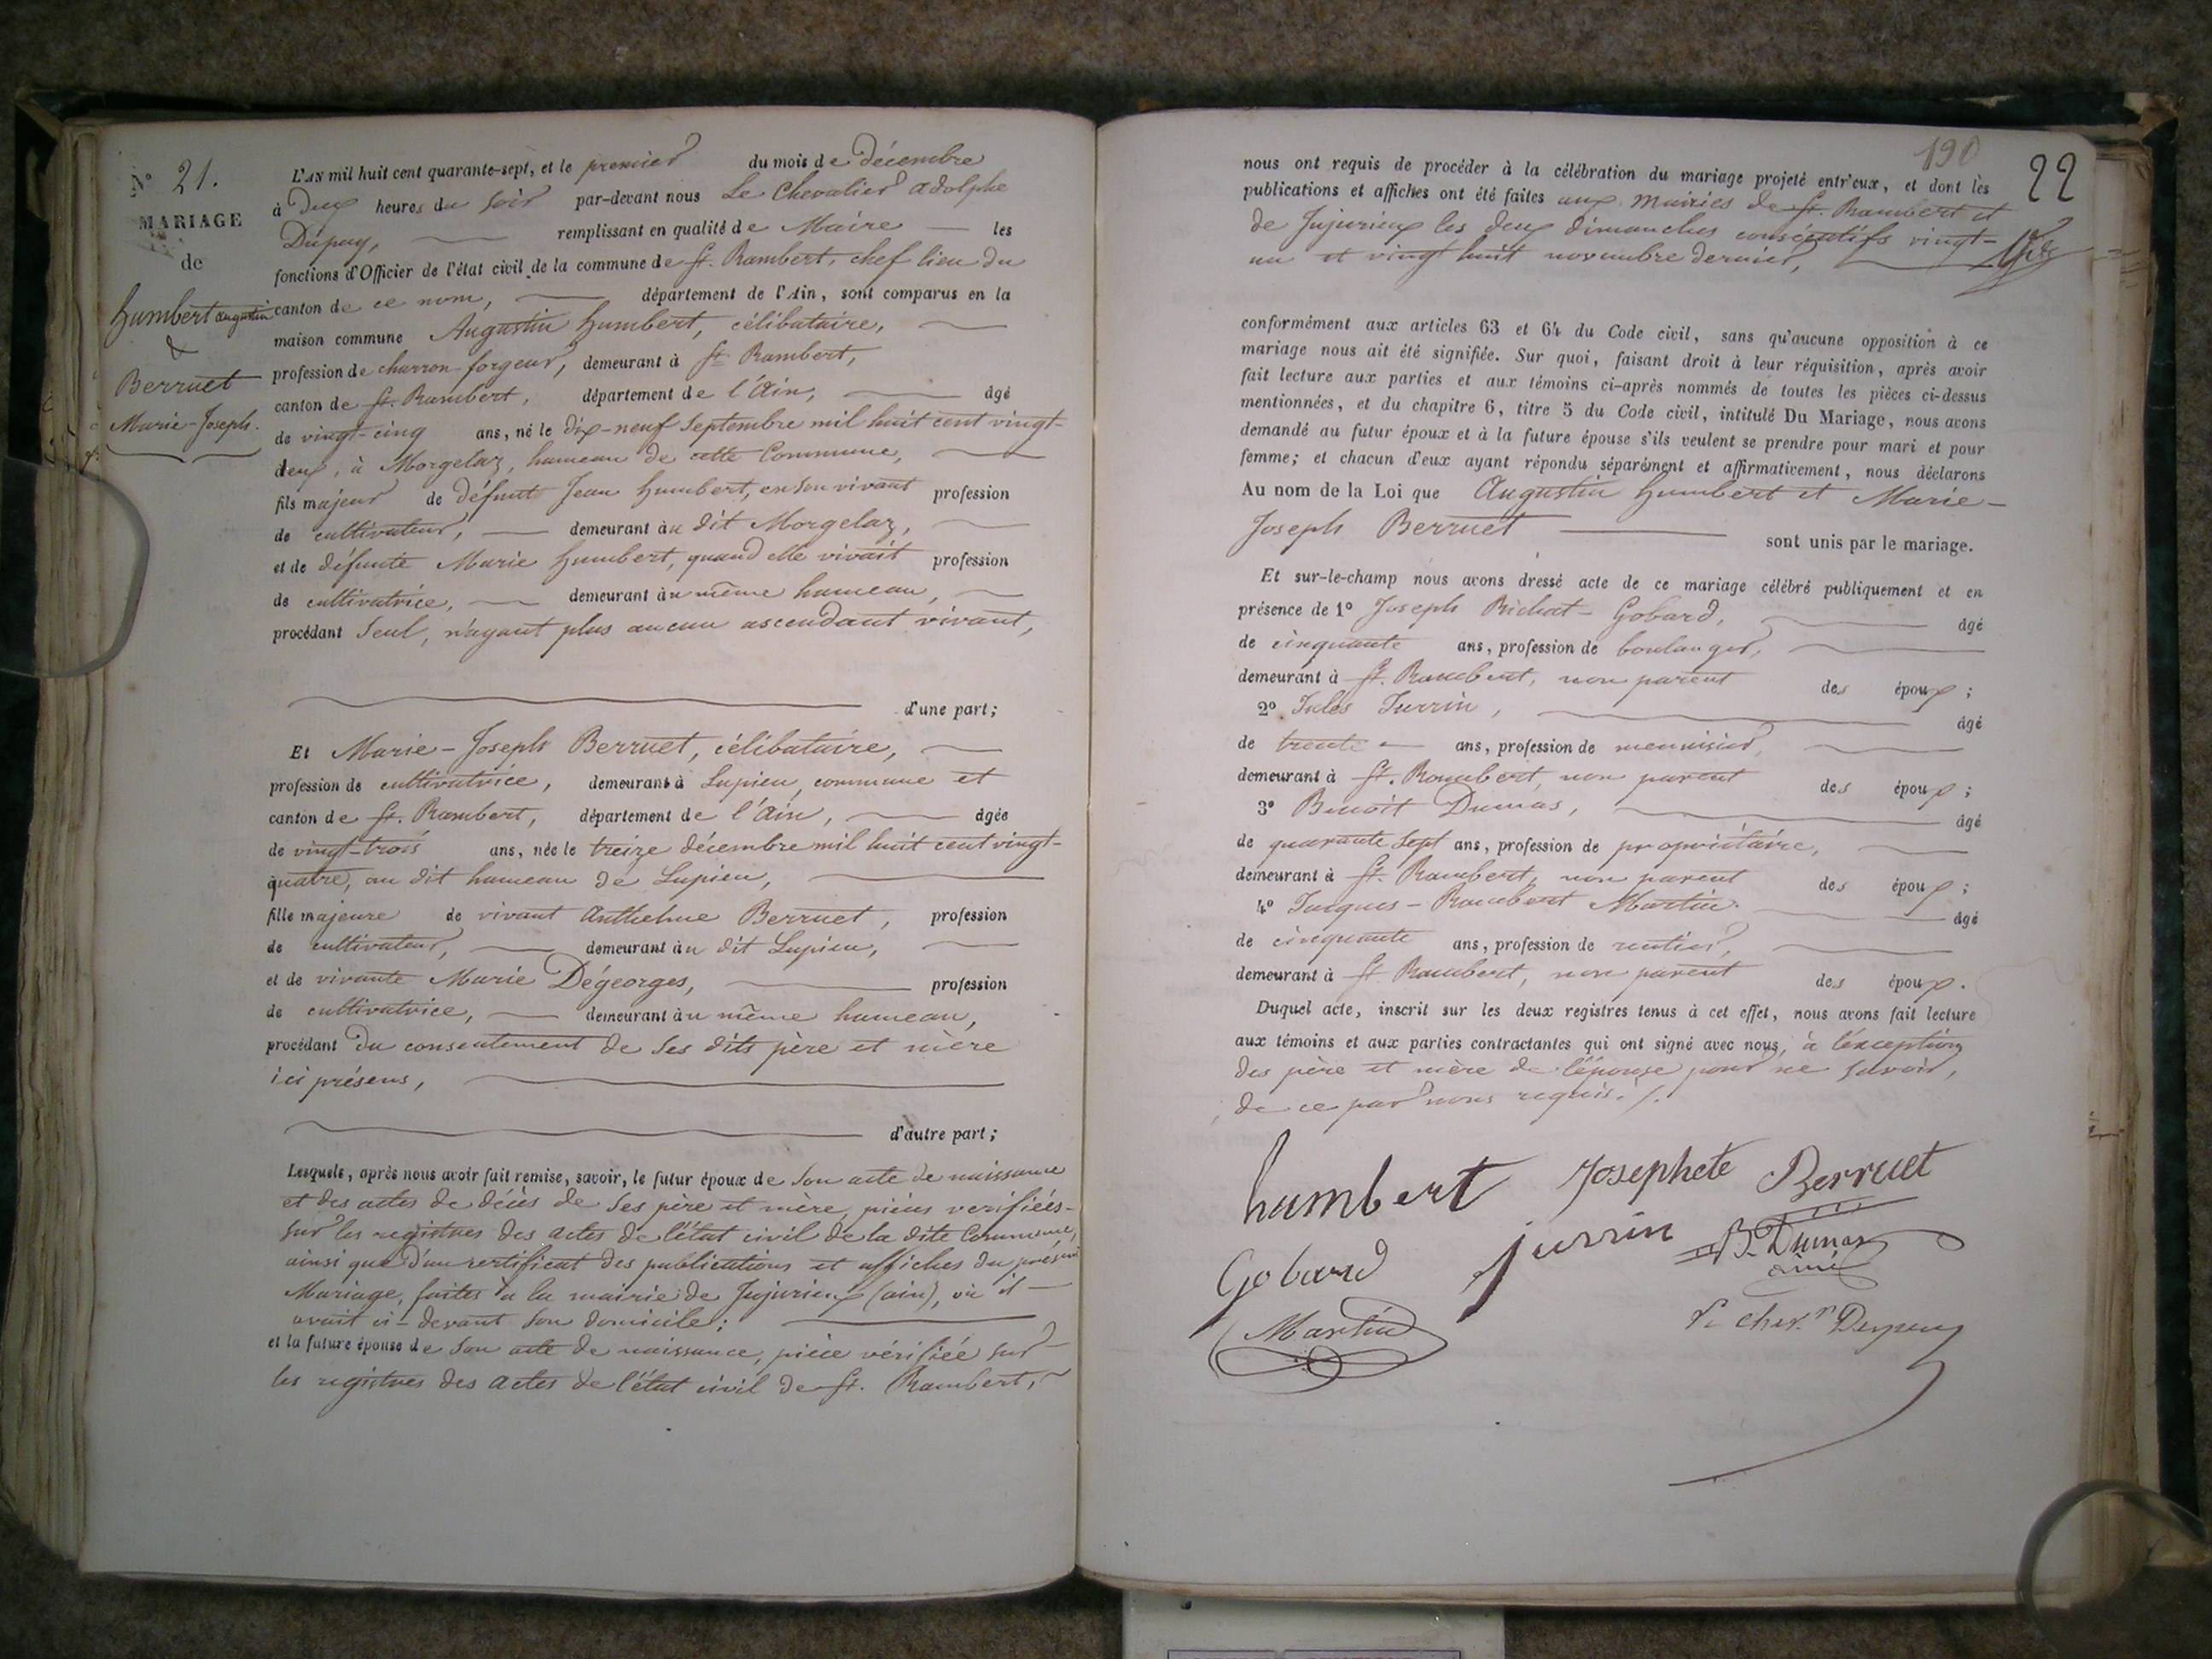 N° 21.
MARIAGE
de
humbert augustin
&
Berruet
Marie-Joseph.
L'AN mil huit cent quarante-sept, et le premier du mois de décembre
à Deux heures du soir par-devant nous Le Chevalier adolphe
Dupuy, remplissant en qualité de Maire les
fonctions d'Officier de l'état civil de la commune de St. Rambert, chef lieu du
canton de ce nom, département de l'Ain, sont comparus en la
maison commune Augustin humbert, célibataire,
profession de charron-forgeur, demeurant à St. Rambert,
canton de St. Rambert, département de l'Ain, âgé
de vingt-cinq ans, né le dix-neuf Septembre mil huit cent vingt-
deux, à Morgelaz, hameau de cette Commune,
fils majeur de défunt Jean humbert, en son vivant profession
de cultivateur, demeurant au dit Morgelaz,
et de défunte Marie humbert, quand elle vivait profession
de cultivatrice, demeurant au même hameau,
procédant Seul, n'ayant plus aucun ascendant vivant,
d'une part;
Et Marie-Joseph Berruet, célibataire,
profession de cultivatrice, demeurant à Lupieu, commune et
canton de St. Rambert, département de l'Ain, âgée
de vingt-trois ans, née le treize décembre mil huit cent vingt-
quatre, au dit hameau de Lupieu,
fille majeure de vivant Anthelme Berruet, profession
de cultivateur, demeurant au dit Lupieu,
et de vivante Marie Dégeorges, profession
de cultivatrice, demeurant au même hameau,
procédant du consentement de ses dits père et mère
ici présens,
d'autre part;
Lesquels, après nous avoir fait remise, savoir, le futur époux de son acte de naissance
et des actes de décès de ses père et mère, pièces verifiées
sur les registres des actes de l'état civil de la dite Commune,
ainsi que d'un certificat des publications et affiches du présent
Mariage, faites à la mairie de Jujurieux (ain), où il
avait ci-devant son domicile;
et la future épouse de son acte de naissance, pièce vérifiée sur
les registres des actes de l'état civil de St. Rambert,
190
22
nous ont requis de procéder à la célébration du mariage projeté entr'eux, et dont les
publications et affiches ont été faites aux mairies de St. Rambert et
de Jujurieux les deux dimanches consécutifs vingt-
un et vingt huit novembre dernier,
conformément aux articles 63 et 64 du Code civil, sans qu'aucune opposition à ce
mariage nous ait été signifiée. Sur quoi, faisant droit à leur réquisition, après avoir
fait lecture aux parties et aux témoins ci-après nommés de toutes les pièces ci-dessus
mentionnées, et du chapitre 6, titre 5 du Code civil, intitulé Du Mariage, nous avons
demandé au futur époux et à la future épouse s'ils veulent se prendre pour mari et pour
femme; et chacun d'eux ayant répondu séparément et affirmativement, nous déclarons
Au nom de la Loi que Augustin humbert et Marie-
Joseph Berruet sont unis par le mariage.
Et sur-le-champ nous avons dressé acte de ce mariage célébré publiquement et en
présence de 1° Joseph Bichat-Gobard, âgé
de cinquante ans, profession de boulanger,
demeurant à St. Rambert, non parent des époux;
2° Jules Jurrin, âgé
de trente ans, profession de menuisier,
demeurant à St. Rambert, non parent des époux;
3° Benoit Dumas, âgé
de quarante sept ans, profession de propriétaire,
demeurant à St. Rambert, non parent des époux;
4° Jacques-Rambert Martin. âgé
de cinquante ans, profession de rentier,
demeurant à St. Rambert, non parent des époux.
Duquel acte, inscrit sur les deux registres tenus à cet effet, nous avons fait lecture
aux témoins et aux parties contractantes qui ont signé avec nous, à l'exception
des père et mère de l'épouse pour ne savoir,
de ce par nous requis./.
humbert Josephete Berruet
Gobard jurrin B. Dumas
ainé
Martin
Le chev.r Dupuy